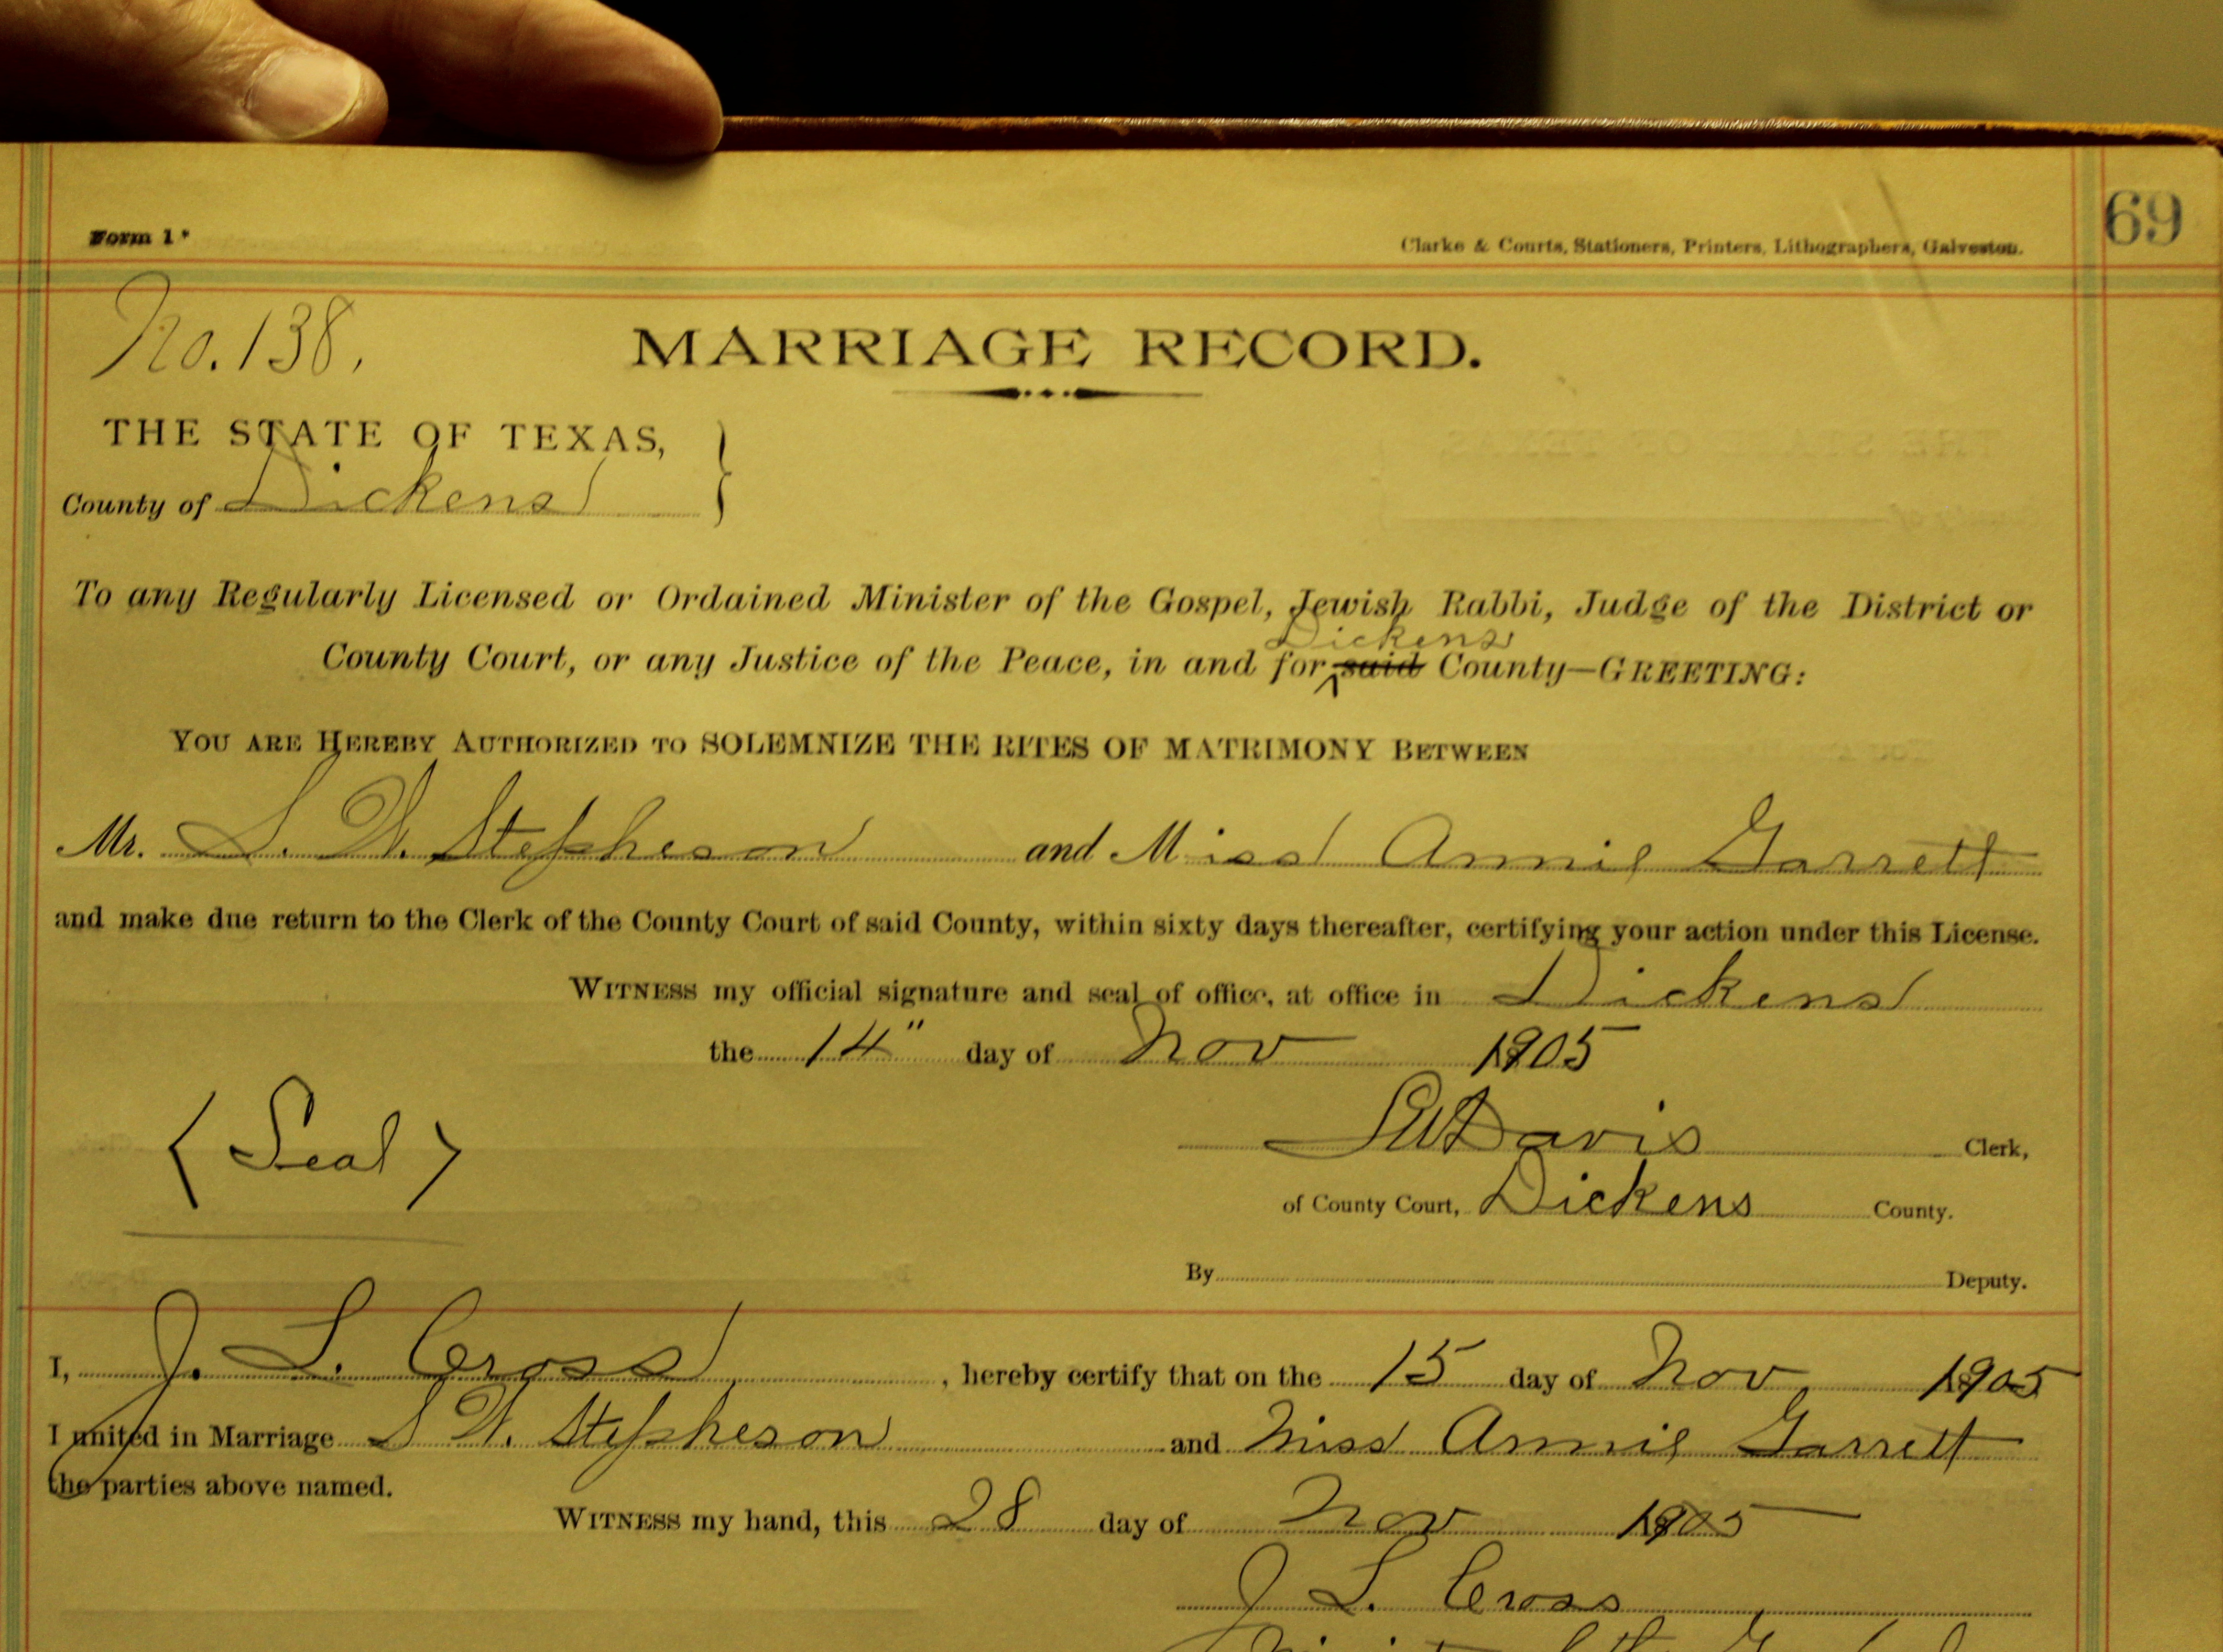 Form 1*
Clarke & Courts, Stationers, Printers, Lithographers, Galveston.
69
No. 138.
MARRIAGE RECORD.
THE STATE OF TEXAS,
County of Dickens
To any Regularly Licensed or Ordained Minister of the Gospel, Jewish Rabbi, Judge of the District or
Dickens
County Court, or any Justice of the Peace, in and for said County—GREETING:
YOU ARE HEREBY AUTHORIZED TO SOLEMNIZE THE RITES OF MATRIMONY BETWEEN
Mr. S. W. Stepheson and Miss Annie Garrett
and make due return to the Clerk of the County Court of said County, within sixty days thereafter, certifying your action under this License.
WITNESS my official signature and seal of office, at office in Dickens
the 14" day of Nov 1905
(Seal)
Davis Clerk,
of County Court, Dickens County.
By Deputy.
I, J. L. Cross, hereby certify that on the 15 day of Nov 1905
I united in Marriage S W. Stepheson and Miss Annie Garrett
the parties above named.
WITNESS my hand, this 28 day of Nov 1905
J L. Cross